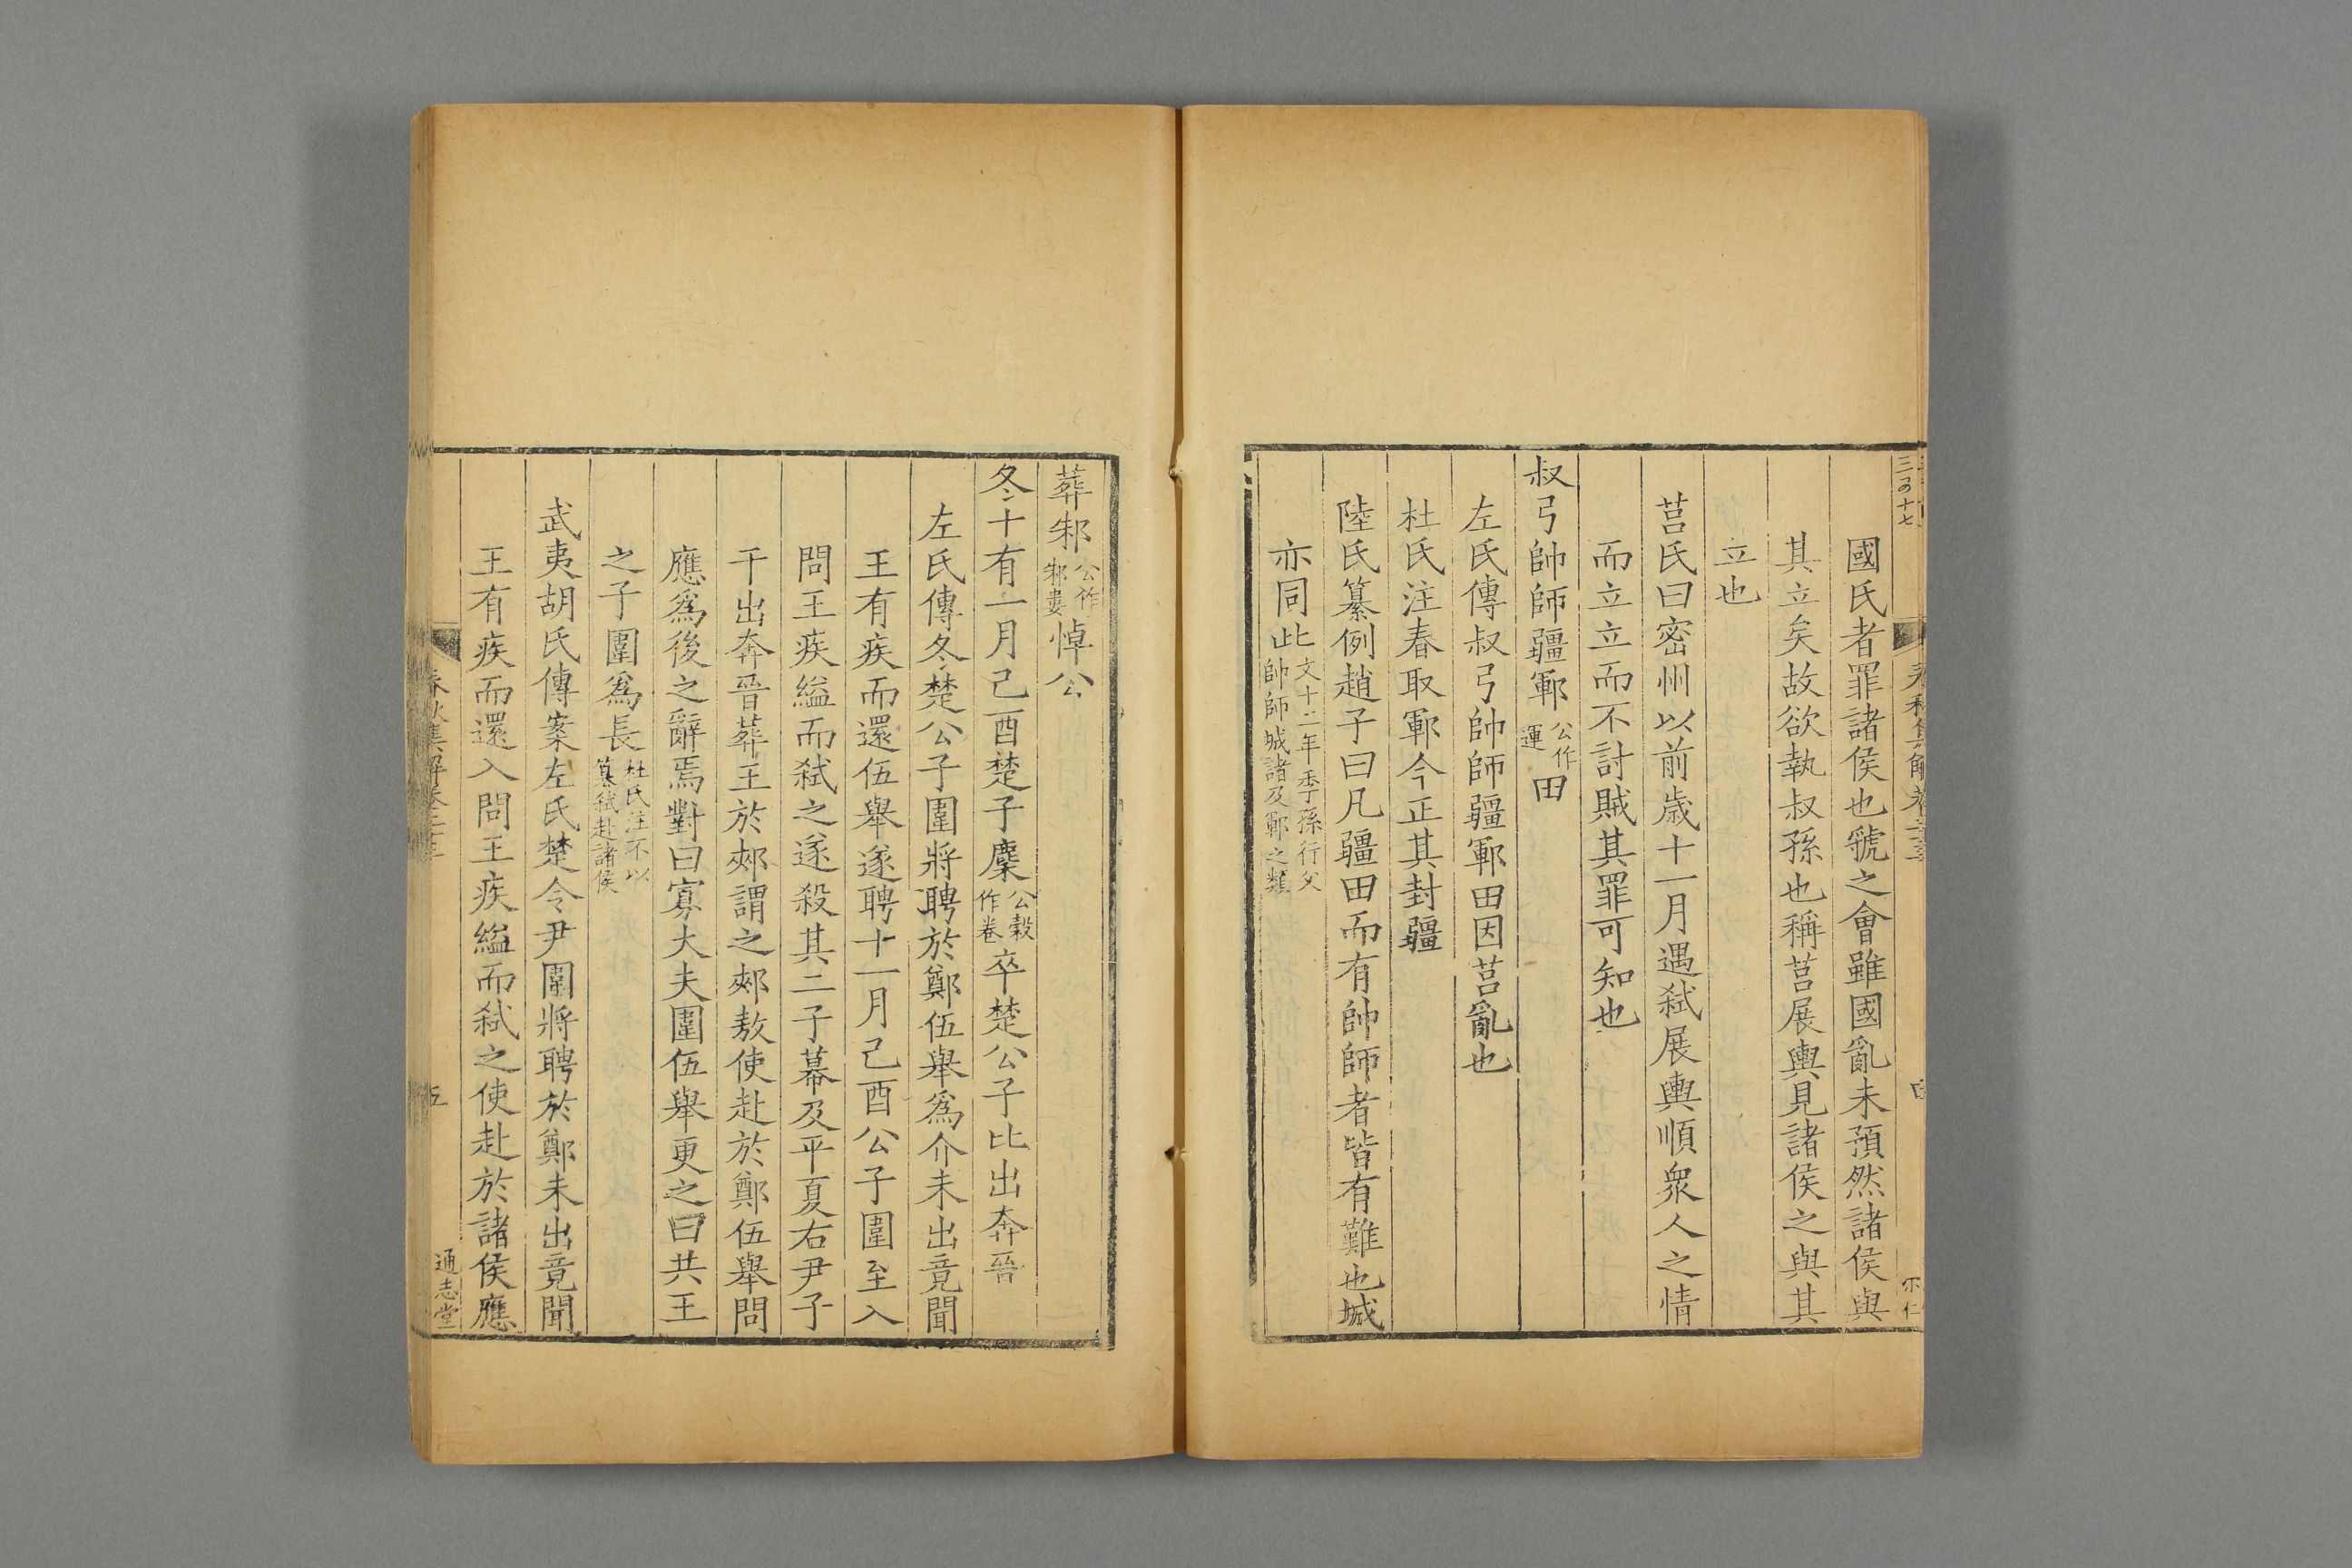 三百十七
國氏者罪諸侯也虢之會雖國亂未預然諸侯與
其立矣故欲執叔孫也稱莒展輿見諸侯之與其
立也
莒氏曰密州以前歲十一月遇弒展輿順衆人之情
而立立而不討賊其罪可知也
叔弓帥師疆鄆公作運田
左氏傳叔弓帥師疆鄆田因莒亂也
杜氏注春取鄆今正其封疆
陸氏纂例趙子曰凡疆田而有帥師者皆有難也城
亦同此文十二年季孫行父帥師城諸及鄆之類
葬邾公作邾婁悼公
冬十有一月己酉楚子麇公穀作卷卒楚公子比出奔晉
左氏傳冬楚公子圍將聘於鄭伍舉為介未出竟聞
王有疾而還伍舉遂聘十一月己酉公子圍至入
問王疾縊而弒之遂殺其二子幕及平夏右尹子
干出奔晉葬王於郟謂之郟敖使赴於鄭伍舉問
應為後之辭焉對曰寡大夫圍伍舉更之曰共王
之子圍為長杜氏注不以篡弒赴諸侯
武夷胡氏傳案左氏楚令尹圍將聘於鄭未出竟聞
王有疾而還入問王疾縊而弒之使赴於諸侯應
春秋集解卷二十三
五
通志堂